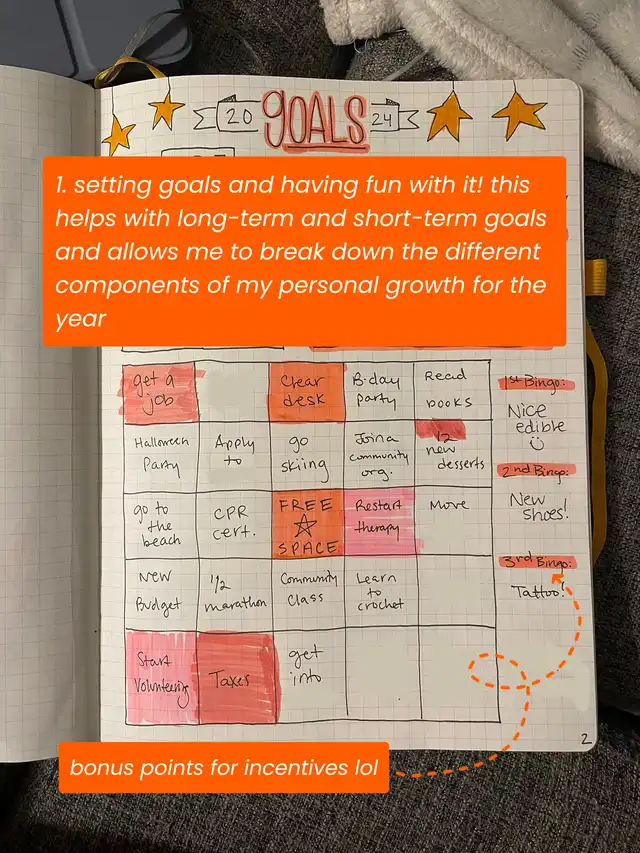 20 GOALS 24
1. setting goals and having fun with it! this
helps with long-term and short-term goals
and allows me to break down the different
components of my personal growth for the
year
get a
job
Clear
desk
B-day
party
Read
books
Halloween
Party
Apply
to
go
skiing
Join a
community
org.
12
new
desserts
go to
the
beach
CPR
cert.
FREE
SPACE
Restart
therapy
Move
New
Budget
1/2
marathon
Community
Class
Learn
to
crochet
Start
Volunteering
Taxes
get
into
1st Bingo:
Nice
edible
2nd Bingo:
New
shoes!
3rd Bingo:
Tattoo!
2
bonus points for incentives lol